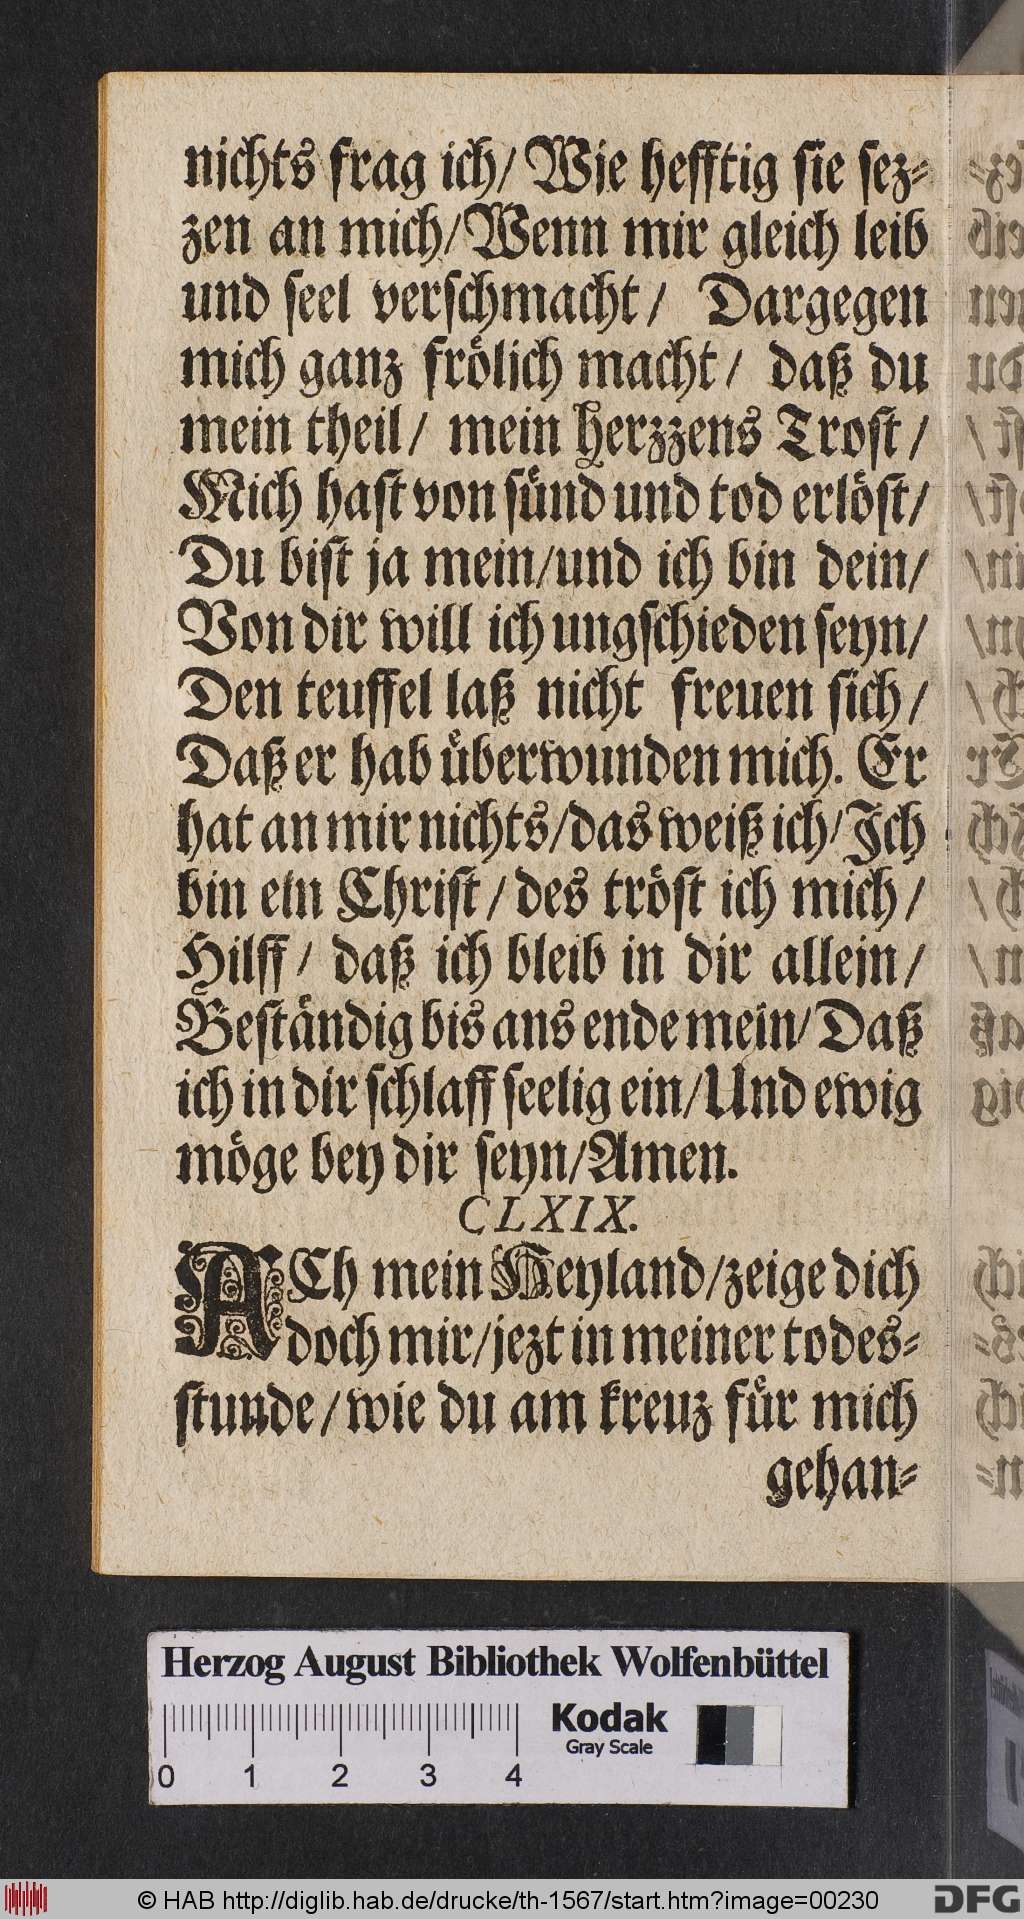 nichts frag ich/ Wie hefftig sie sez-
zen an mich/ Wenn mir gleich leib
und seel verschmacht/ Dargegen
mich ganz frölich macht/ daß du
mein theil/ mein herzzens Trost/
Mich hast von sünd und tod erlöst/
Du bist ja mein/und ich bin dein/
Von dir will ich ungschieden seyn/
Den teuffel laß nicht freuen sich/
Daß er hab überwunden mich. Er
hat an mir nichts/das weiß ich/Ich
bin ein Christ/ des tröst ich mich/
Hilff/ daß ich bleib in dir allein/
Beständig bis ans ende mein/ Daß
ich in dir schlaff seelig ein/Und ewig
möge bey dir seyn/Amen.
CLXIX.
ACh mein Heyland/zeige dich
doch mir/jezt in meiner todes-
stunde/wie du am kreuz für mich
gehan-
Herzog August Bibliothek Wolfenbüttel
Kodak
Gray Scale
0 1 2 3 4
© HAB http://diglib.hab.de/drucke/th-1567/start.htm?image=00230
DFG